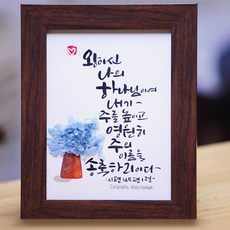 왕이신
나의
하나님이여
내가
주를 높이고
영원히
주의
이름을
송축하리이다
-시편 145편 1절-
Calligraphy.